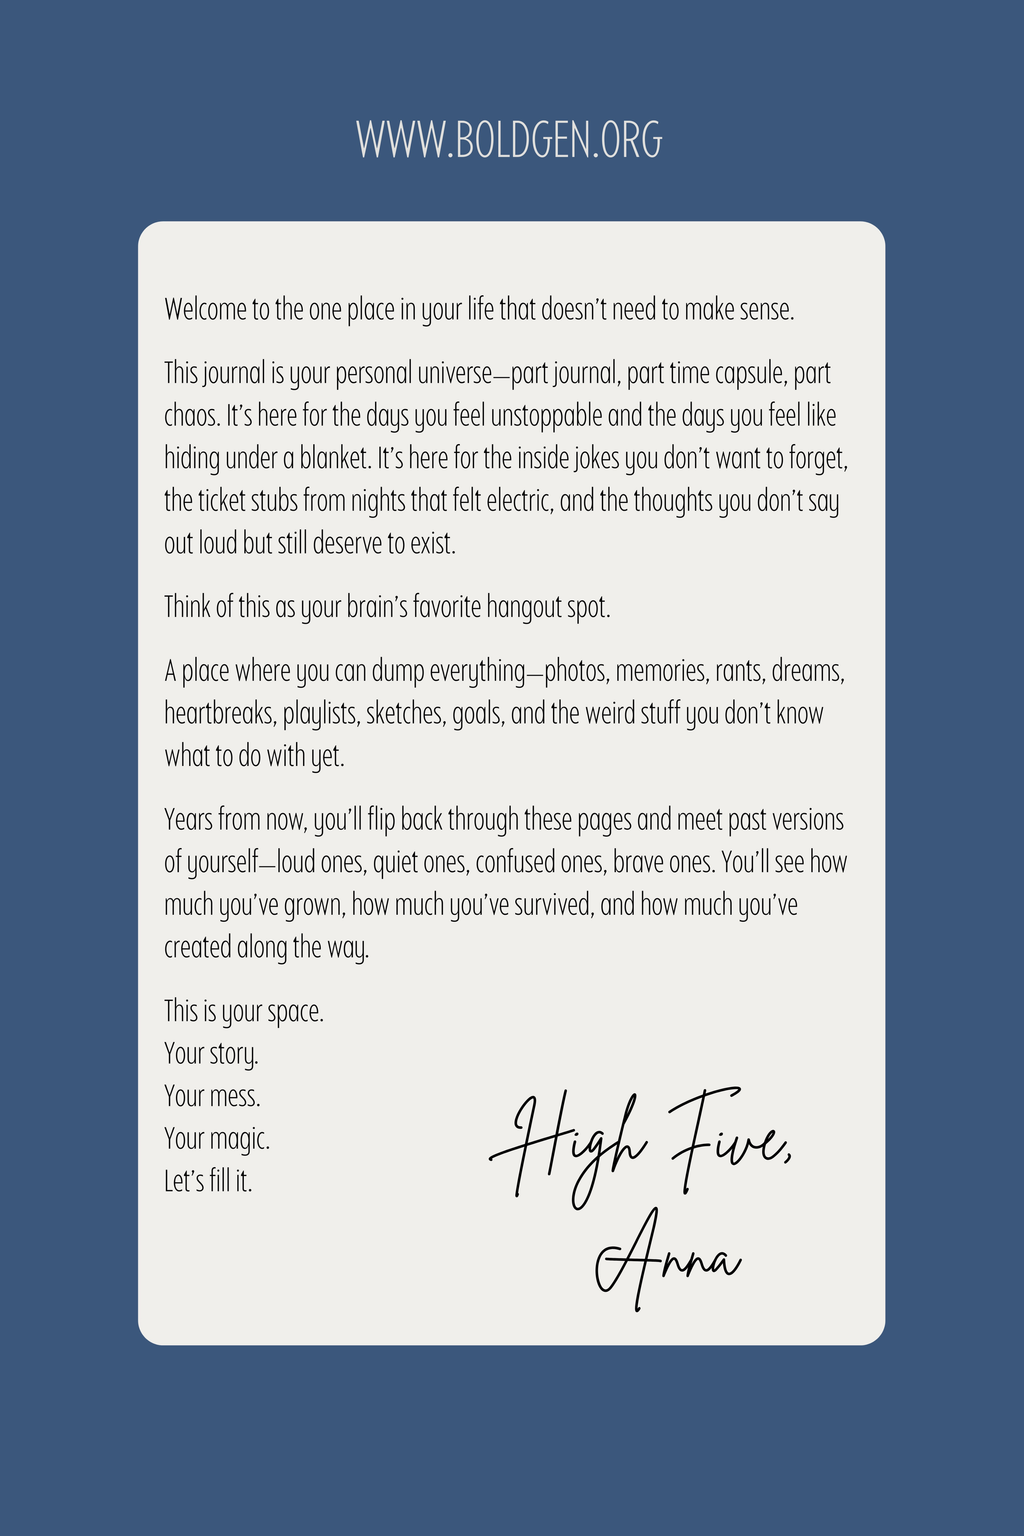 WWW.BOLDGEN.ORG
Welcome to the one place in your life that doesn’t need to make sense.
This journal is your personal universe—part journal, part time capsule, part
chaos. It’s here for the days you feel unstoppable and the days you feel like
hiding under a blanket. It’s here for the inside jokes you don’t want to forget,
the ticket stubs from nights that felt electric, and the thoughts you don’t say
out loud but still deserve to exist.
Think of this as your brain’s favorite hangout spot.
A place where you can dump everything—photos, memories, rants, dreams,
heartbreaks, playlists, sketches, goals, and the weird stuff you don’t know
what to do with yet.
Years from now, you’ll flip back through these pages and meet past versions
of yourself—loud ones, quiet ones, confused ones, brave ones. You’ll see how
much you’ve grown, how much you’ve survived, and how much you’ve
created along the way.
This is your space.
Your story.
Your mess.
Your magic.
Let’s fill it.
High Five,
Anna